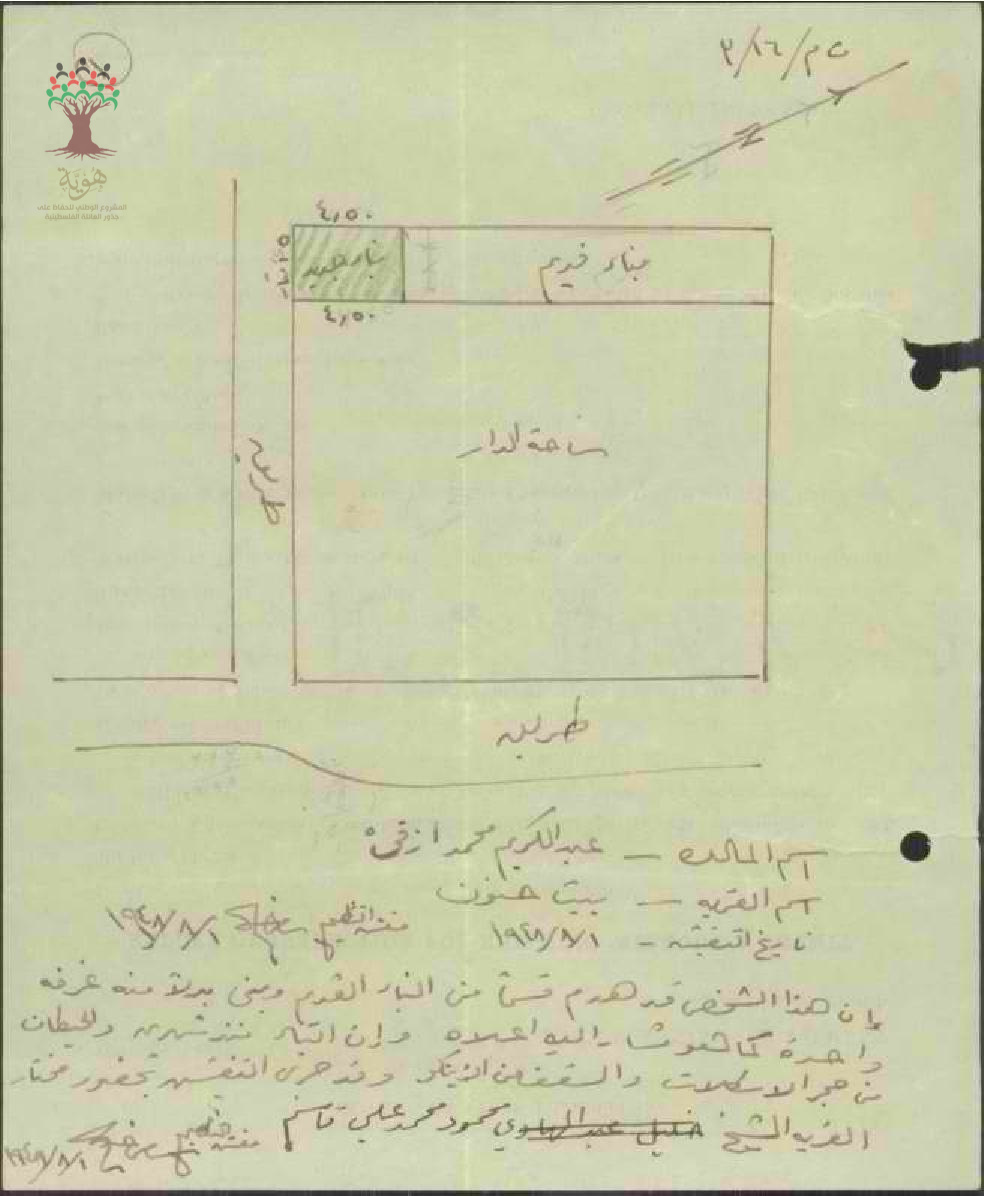 ت م/١٦/٣
هوية
المشروع الوطني للحفاظ على
جذور العائلة الفلسطينية
N
٤,٥٠
بناء جديد
بناء قديم
٤,٥٠
ساحة الدار
طريق
طريق
اسم المالك — عبد الكريم محمد
اسم القريه — بيت حنون
تاريخ التفتيش — ١٩٤٨/٨/١ مفتش التنظيم ١٩٤٨/٨/١
إن هذا الشخص قد هدم قسماً من البناء القديم وبنى بدلاً منه غرفه
واحدة كما هو مشار اليه اعلاه وإن البناء منذ شهرين والحيطان
من حجر الاسكلات والسقف من الزينكو وقد جرى التفتيش بحضور مختار
القريه الشيخ محمود محمد علي قاسم مفتش التنظيم ١٩٤٨/٨/١